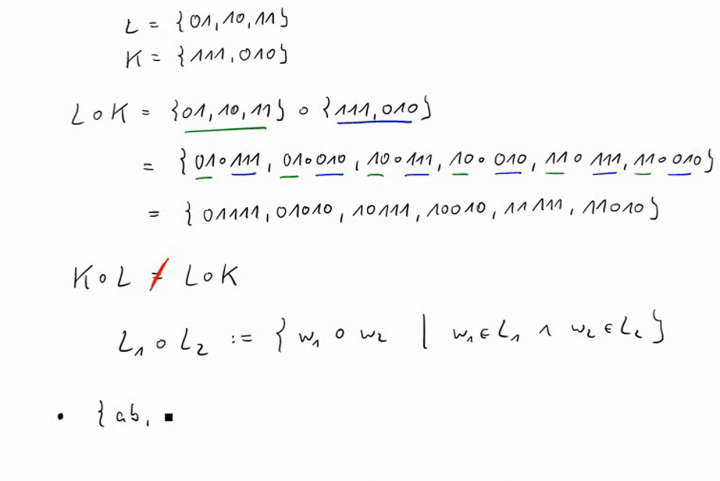 L = {01, 10, 11}
K = {111, 010}
L ∘ K = {01, 10, 11} ∘ {111, 010}
= {01∘111, 01∘010, 10∘111, 10∘010, 11∘111, 11∘010}
= {01111, 01010, 10111, 10010, 11111, 11010}
K ∘ L ≠ L ∘ K
L₁ ∘ L₂ := { w₁ ∘ w₂ | w₁ ∈ L₁ ∧ w₂ ∈ L₂ }
• {ab,